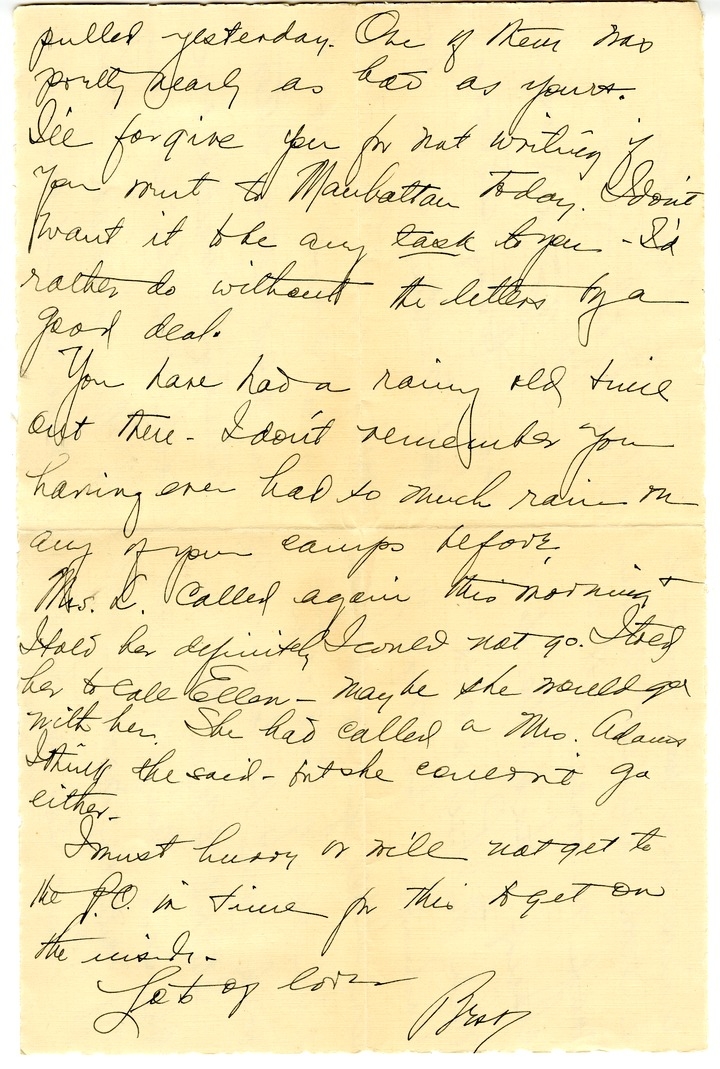 pulled yesterday. One of them was
pretty nearly as bad as yours.
I'll forgive you for not writing if
you went to Manhattan today. I don't
want it to be any task to you - I'd
rather do without the letters by a
good deal.
You have had a rainy old time
out there - I don't remember you
having ever had so much rain on
any of your camps before.
Mrs. L. called again this morning +
I told her definitely I could not go. I told
her to call Ellen - maybe she would go
with her. She had called a Mrs. Adams
I think she said - but she couldn't go
either.
I must hurry or will not get to
the P.O. in time for this to get on
the inside.
Lots of love
Bess